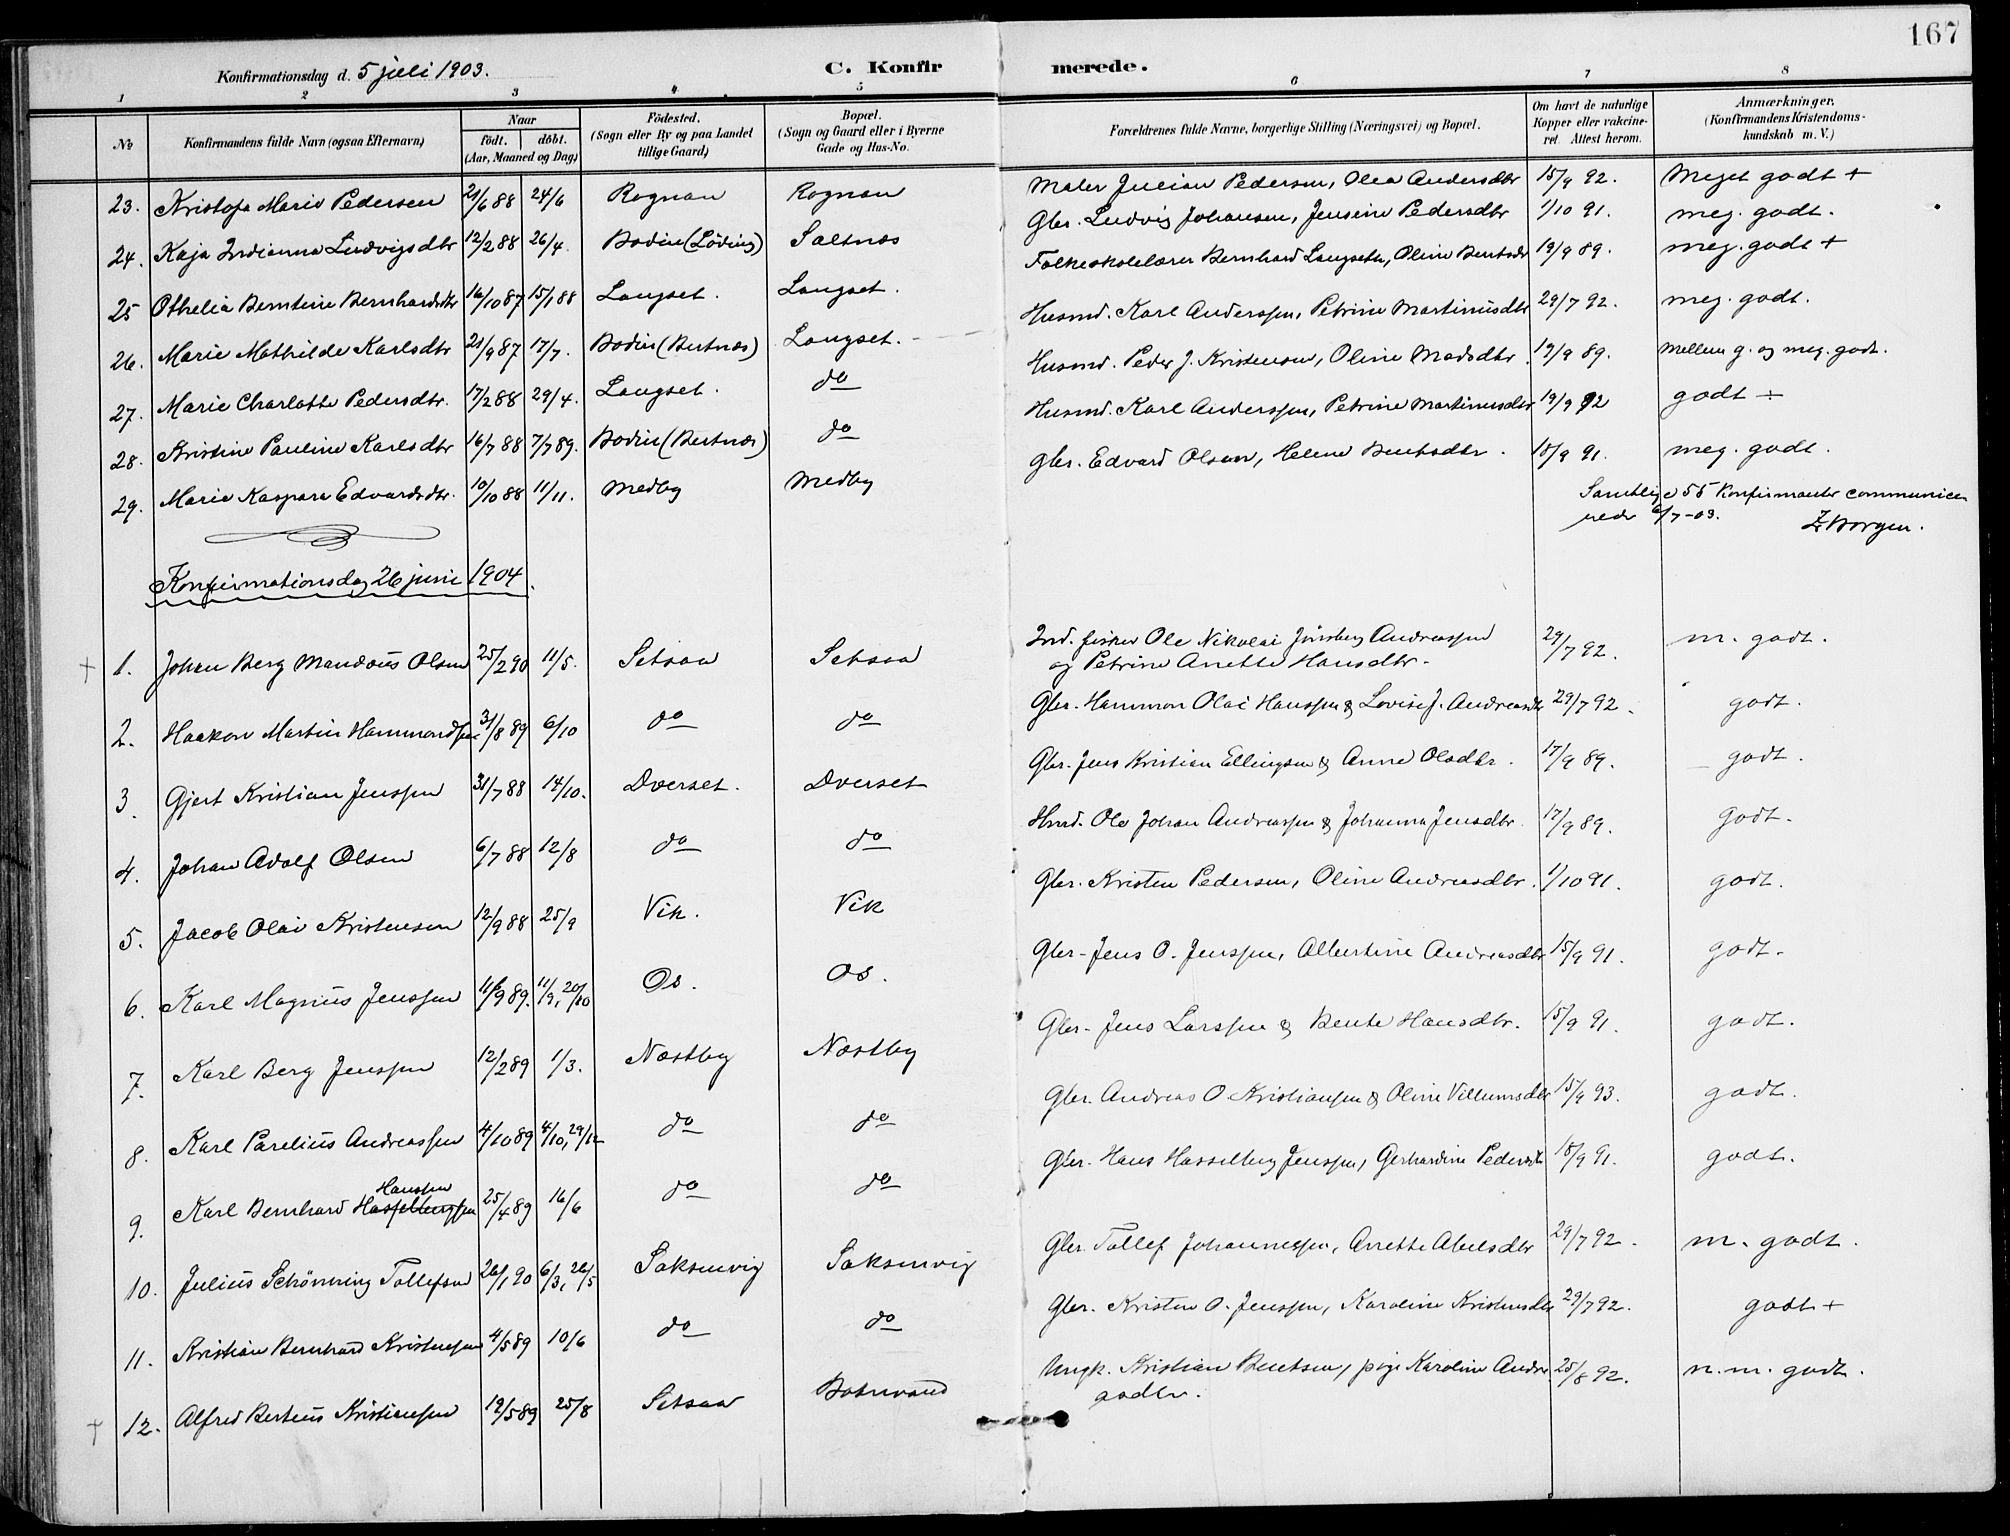 167
Konfirmationsdag d. 5 juli 1903. C. Konfir merede.
1 2 3 4 5 6 7 8
No
Konfirmandens fulde Navn (ogsaa Efternavn)
Naar
födt. döbt.
(Aar, Maaned og Dag)
Födested.
(Sogn eller By og paa Landet
tillige Gaard)
Bopæl.
(Sogn og Gaard eller i Byerne
Gade og Hus-No.
Forældrenes fulde Navne, borgerlige Stilling (Næringsvei) og Bopæl.
Om havt de naturlige
Kopper eller vakcine-
ret. Attest herom.
Anmærkninger.
(Konfirmandens Kristendoms-
kundskab m. V.)
23. Kristofa Marie Pedersen 21/6 88 24/6 Rognan Rognan Maler Julian Pedersen, Olea Andersdtr 15/9 92. Meget godt +
24. Kaja Indianna Ludvigsdtr 12/2 88 26/4. Bodin (Löding) Saltnæs Gbr. Ludvig Johansen, Jensine Pedersdtr 1/10 91. meg. godt.
25 Othelia Berntine Bernhardsdtr 16/10 87 15/1 88 Langset. Langset. Folkeskolelærer Bernhard Langseth, Oline Bentsdr 19/9 89. meg. godt +
26. Marie Mathilde Karlsdtr 21/9 87 17/7. Bodin (Bertnæs) Langset. Husmd. Karl Anderssen, Petrine Martinusdtr 29/7 92. meg. godt.
27. Marie Charlotte Pedersdtr. 17/2 88 29/4. Langset. do Husmd. Peder J. Kristensen, Oline Madsdtr 19/9 89. Mellem g. og meg. godt.
28. Kristine Pauline Karlsdtr 16/7 88 7/7 89. Bodin (Bertnæs) do Husmd. Karl Anderssen, Petrine Martinusdtr 19/9 92 godt ÷
29. Marie Kaspara Edvardsdtr. 10/10 88 11/11. Medby Medby Gbr. Edvard Olsen, Helene Bentsdtr. 18/9 91. meg. godt.
Samtlige 55 Konfirmanter communice
rede 6/7-03. Borgen.
Konfirmationsdag 26 juni 1904.
1. Johan Berg Mandrus Olsen 25/2 90 11/5. Setsaa Setsaa Ind. fisker Ole Nikolai Jönsberg Andreassen
og Petrine Anette Hansdtr. 29/7 92. m. godt.
2. Haakon Martin Hammondssen 31/8 89 6/10 do do Gbr. Hammon Olai Hanssen & Lovise J. Andreasdtr 29/7 92. godt.
3. Gjert Kristian Jenssen 31/7 88 14/10. Dverset. Dverset Gbr. Jens Kristian Ellingsen & Anne Olsdtr. 17/9 89. godt.
4. Johan Adolf Olsen 6/7 88 12/8 do do Husd. Ole Johan Andreassen & Johanna Jensdtr. 17/9 89. godt.
5. Jacob Olai Kristensen 12/9 88 25/9 Vik. Vik Gbr. Kristen Pedersen, Oline Andreasdtr. 1/10 91. godt.
6. Karl Magnus Jenssen 11/9 89. 11/9, 20/10 Os. Os. Gbr. Jens O. Jenssen, Albertine Andreasdtr 15/9 91. godt.
7. Karl Berg Jenssen 12/2 89 1/3. Næstby Næstby Gbr. Jens Larssen & Bente Hansdtr. 15/9 91. godt.
8. Karl Parelius Andreassen 4/10 89 4/10, 29/12 do do Gbr. Andreas O. Kristianssen & Oline Villumsdtr 15/9 93. godt.
9. Karl Bernhard Hasselbergssen Hanssen 25/4 89 16/6 do do Gbr. Hans Hasselberg Jenssen, Gerhardine Pedersdtr 18/9 91. godt.
10. Julius Schönning Tollefsen 26/1 90 6/3, 26/5 Saksenvig Saksenvig Gbr. Tollef Johannessen, Anette Abelsdtr 29/7 92. m. godt.
11. Kristian Bernhard Kristensen 4/5 89 10/6 do do Gbr. Kristen O. Jenssen, Karoline Kristensdtr 29/7 92. godt +
12. Alfred Berteus Kristianssen 19/5 89 25/8 Setsaa Botnvand Ungk. Kristian Bentsen, pige Karoline Andre
asdtr. 25/8 92. n. m. godt.